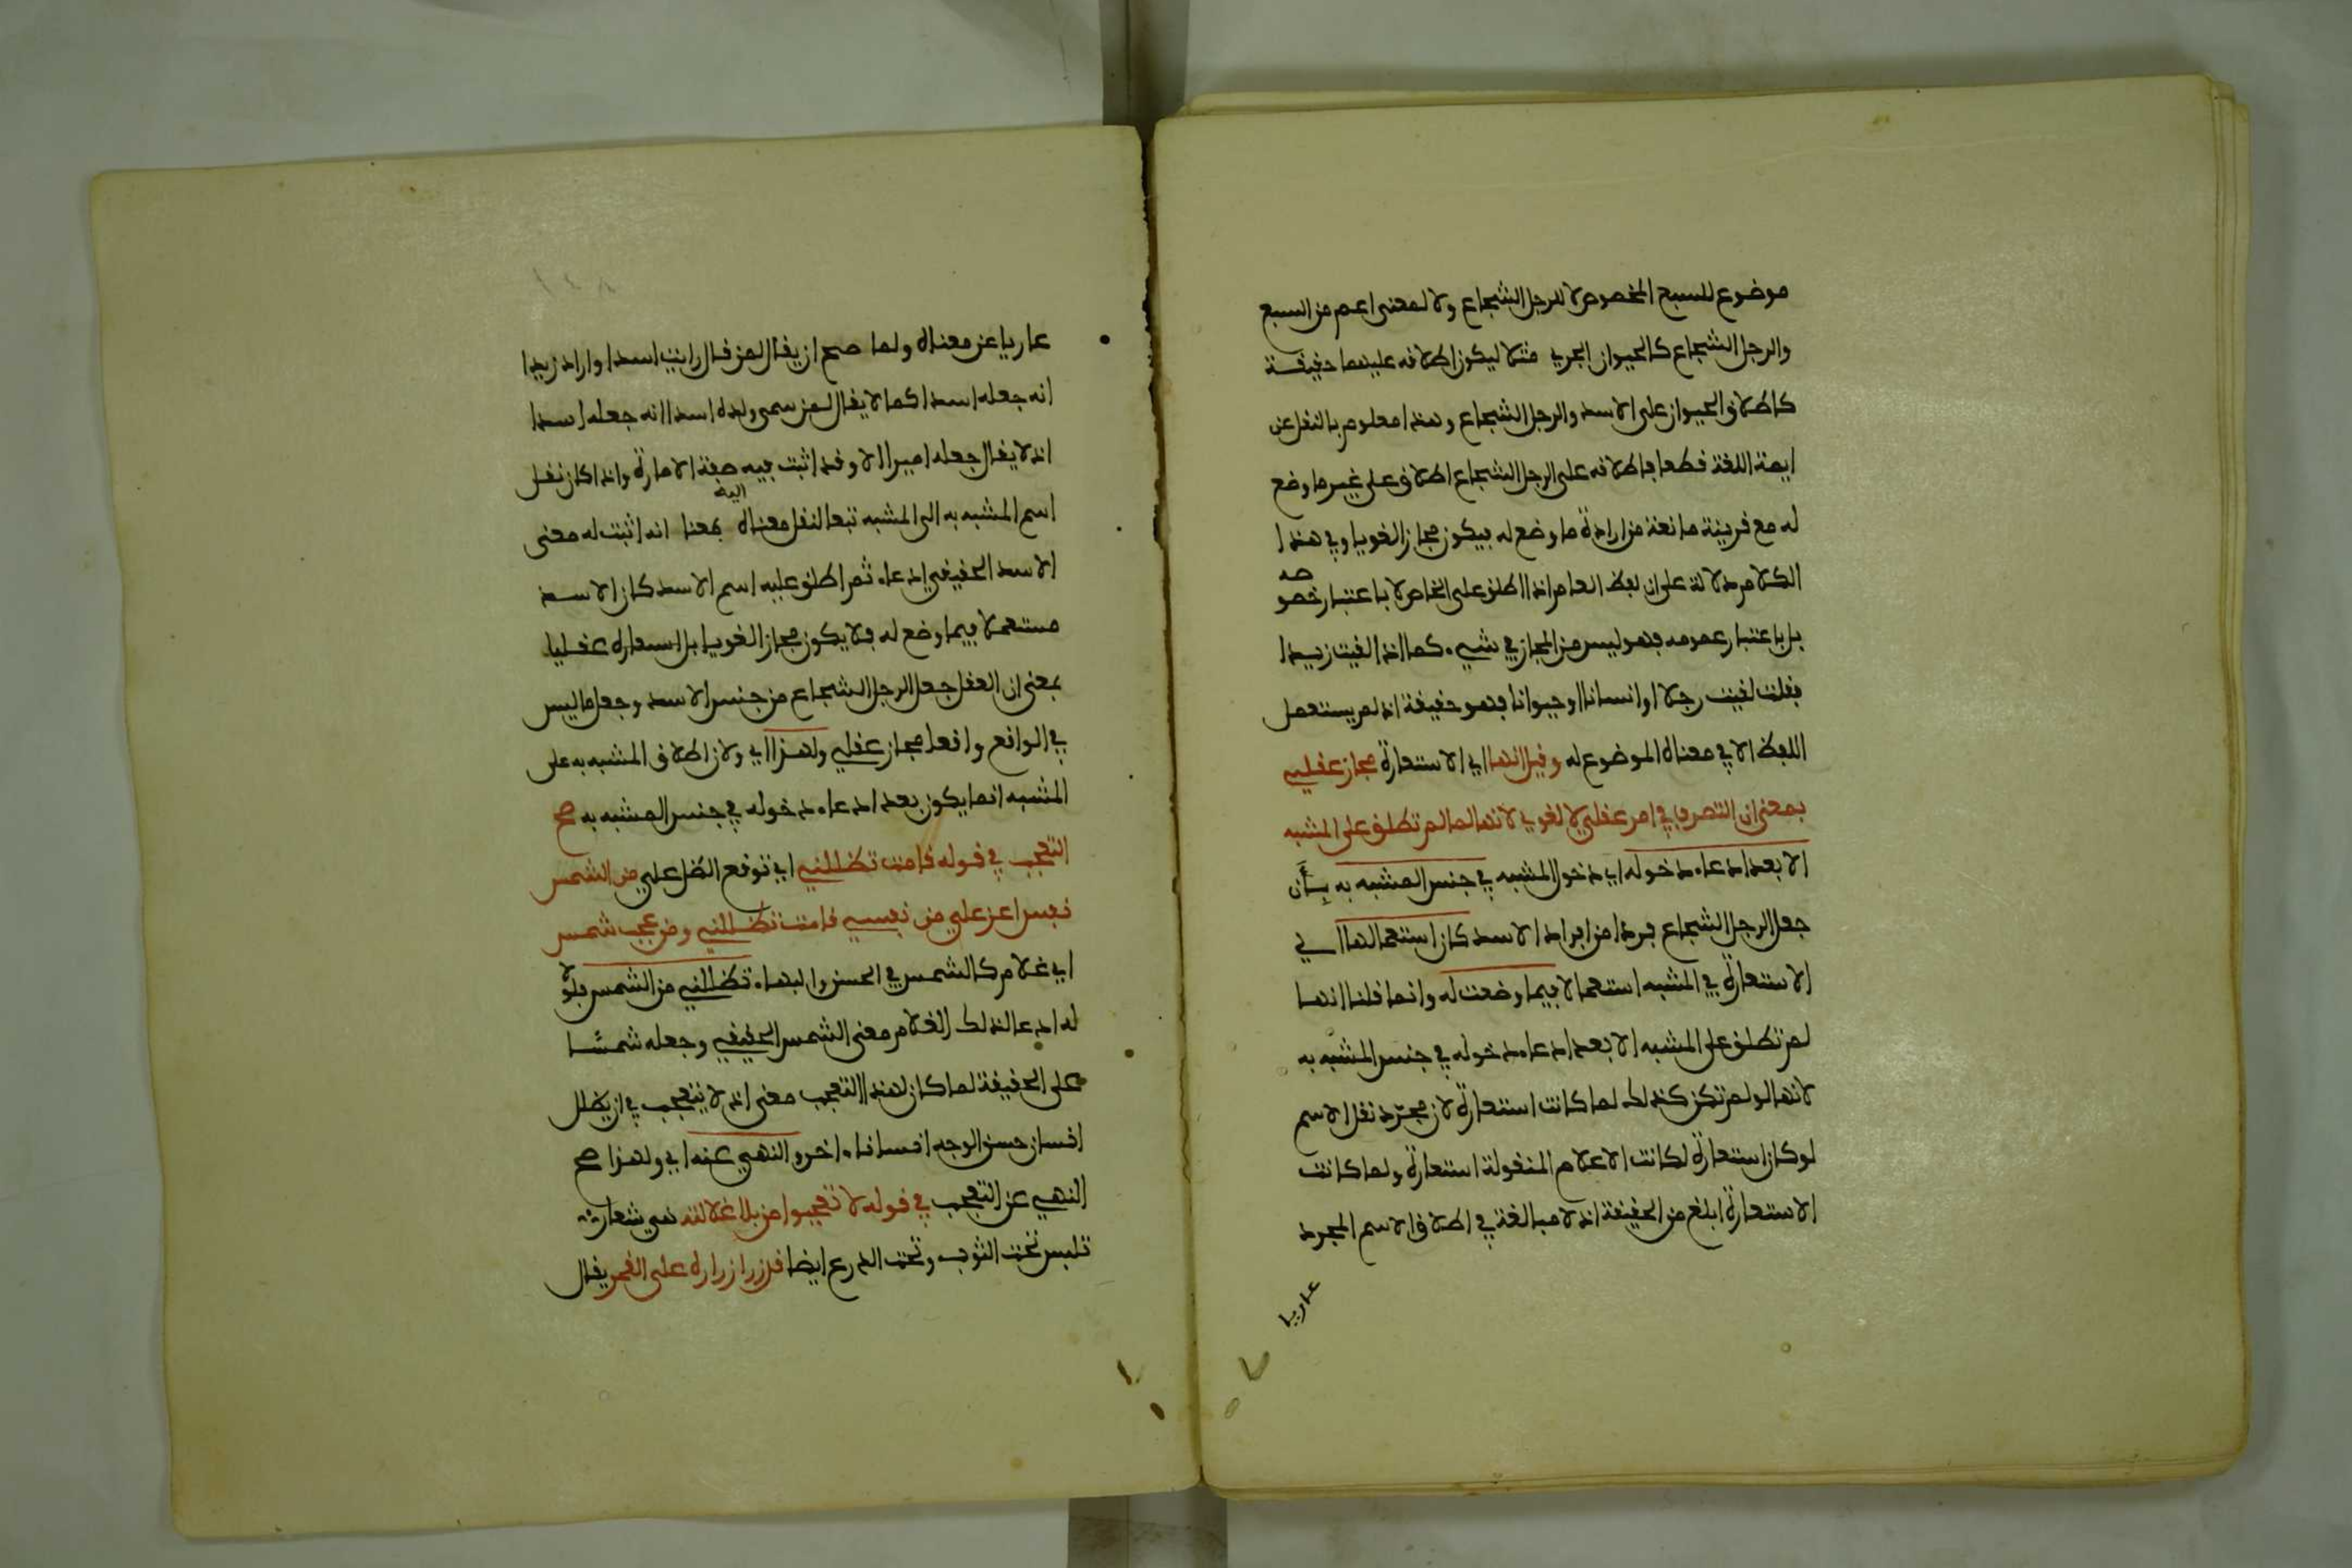 موضوع للسبع المخصوص لا للرجل الشجاع ولا لمعنى اعم من السبع
والرجل الشجاع كالحيوان الجري مثلا ليكون اطلاقه عليهما حقيقة
كاطلاق الحيوان على الاسد والرجل الشجاع وهذا معلوم بالنقل عن
ايمة اللغة قطعا فاطلاقه على الرجل الشجاع اطلاق على غير ما وضع
له مع قرينة مانعة من ارادة ما وضع له فيكون مجازا لغويا وفي هذا
الكلام دلالة على ان لفظ العام اذا اطلق على الخاص لا باعتبار خصوصه
بل باعتبار عمومه فهو ليس من المجاز في شيء كما اذا لقيت زيدا
فقلت لقيت رجلا او انسانا او حيوانا فهو حقيقة اذ لم يستعمل
اللفظ الا في معناه الموضوع له وقيل انها اي الاستعارة مجاز عقلي
بمعنى ان التصرف في امر عقلي لا لغوي لانها لما لم تطلق على المشبه
الا بعد ادعاء دخوله اي دخول المشبه في جنس المشبه به بأن
جعل الرجل الشجاع فردا من افراد الاسد كان استعمالها اي
الاستعارة في المشبه استعمالا فيما وضعت له وانما قلنا انها
لم تطلق على المشبه الا بعد ادعاء دخوله في جنس المشبه به
لانها لو لم تكن كذلك لما كانت استعارة لان مجرد نقل الاسم
لو كان استعارة لكانت الاعلام المنقولة استعارة ولما كانت
الاستعارة ابلغ من الحقيقة اذ لا مبالغة في اطلاق الاسم المجرد
عاريا
١٤٨
عاريا عن معناه ولما صح ان يقال لمن قال رايت اسدا واراد زيدا
انه جعله اسدا كما لا يقال لمن سمى ولده اسدا انه جعله اسدا
اذ لا يقال جعله اميرا الا وقد اثبت فيه صفة الامارة واذا كان نقل
اسم المشبه به الى المشبه تبعا لنقل معناه اليه بمعنا انه اثبت له معنى
الاسد الحقيقي ادعاء ثم اطلق عليه اسم الاسد كان الاسد
مستعملا فيما وضع له فلا يكون مجازا لغويا بل استعاره عقليا
بمعنى ان العقل جعل الرجل الشجاع من جنس الاسد وجعل ما ليس
في الواقع واقعا مجاز عقلي ولهذا اي ولان اطلاق المشبه به على
المشبه انما يكون بعد ادعاء دخوله في جنس المشبه به صح
التعجب في قوله قامت تظللني اي توقع الظل علي من الشمس
نفس اعز علي من نفسي قامت تظللني ومن عجب شمس
اي غلام كالشمس في الحسن والبهاء تظللني من الشمس فلولا
انه ادعا لذلك الغلام معنى الشمس الحقيقي وجعله شمسا
على الحقيقة لما كان لهذا التعجب معنى اذ لا يتعجب في ان يظلل
انسان حسن الوجه انسانا اخر والنهي عنه اي ولهذا صح
النهي عن التعجب في قوله لا تعجبوا من بلا غلالته هي شعار
تلبس تحت الثوب وتحت الدرع ايضا قد زر ازراره على القمر يقال